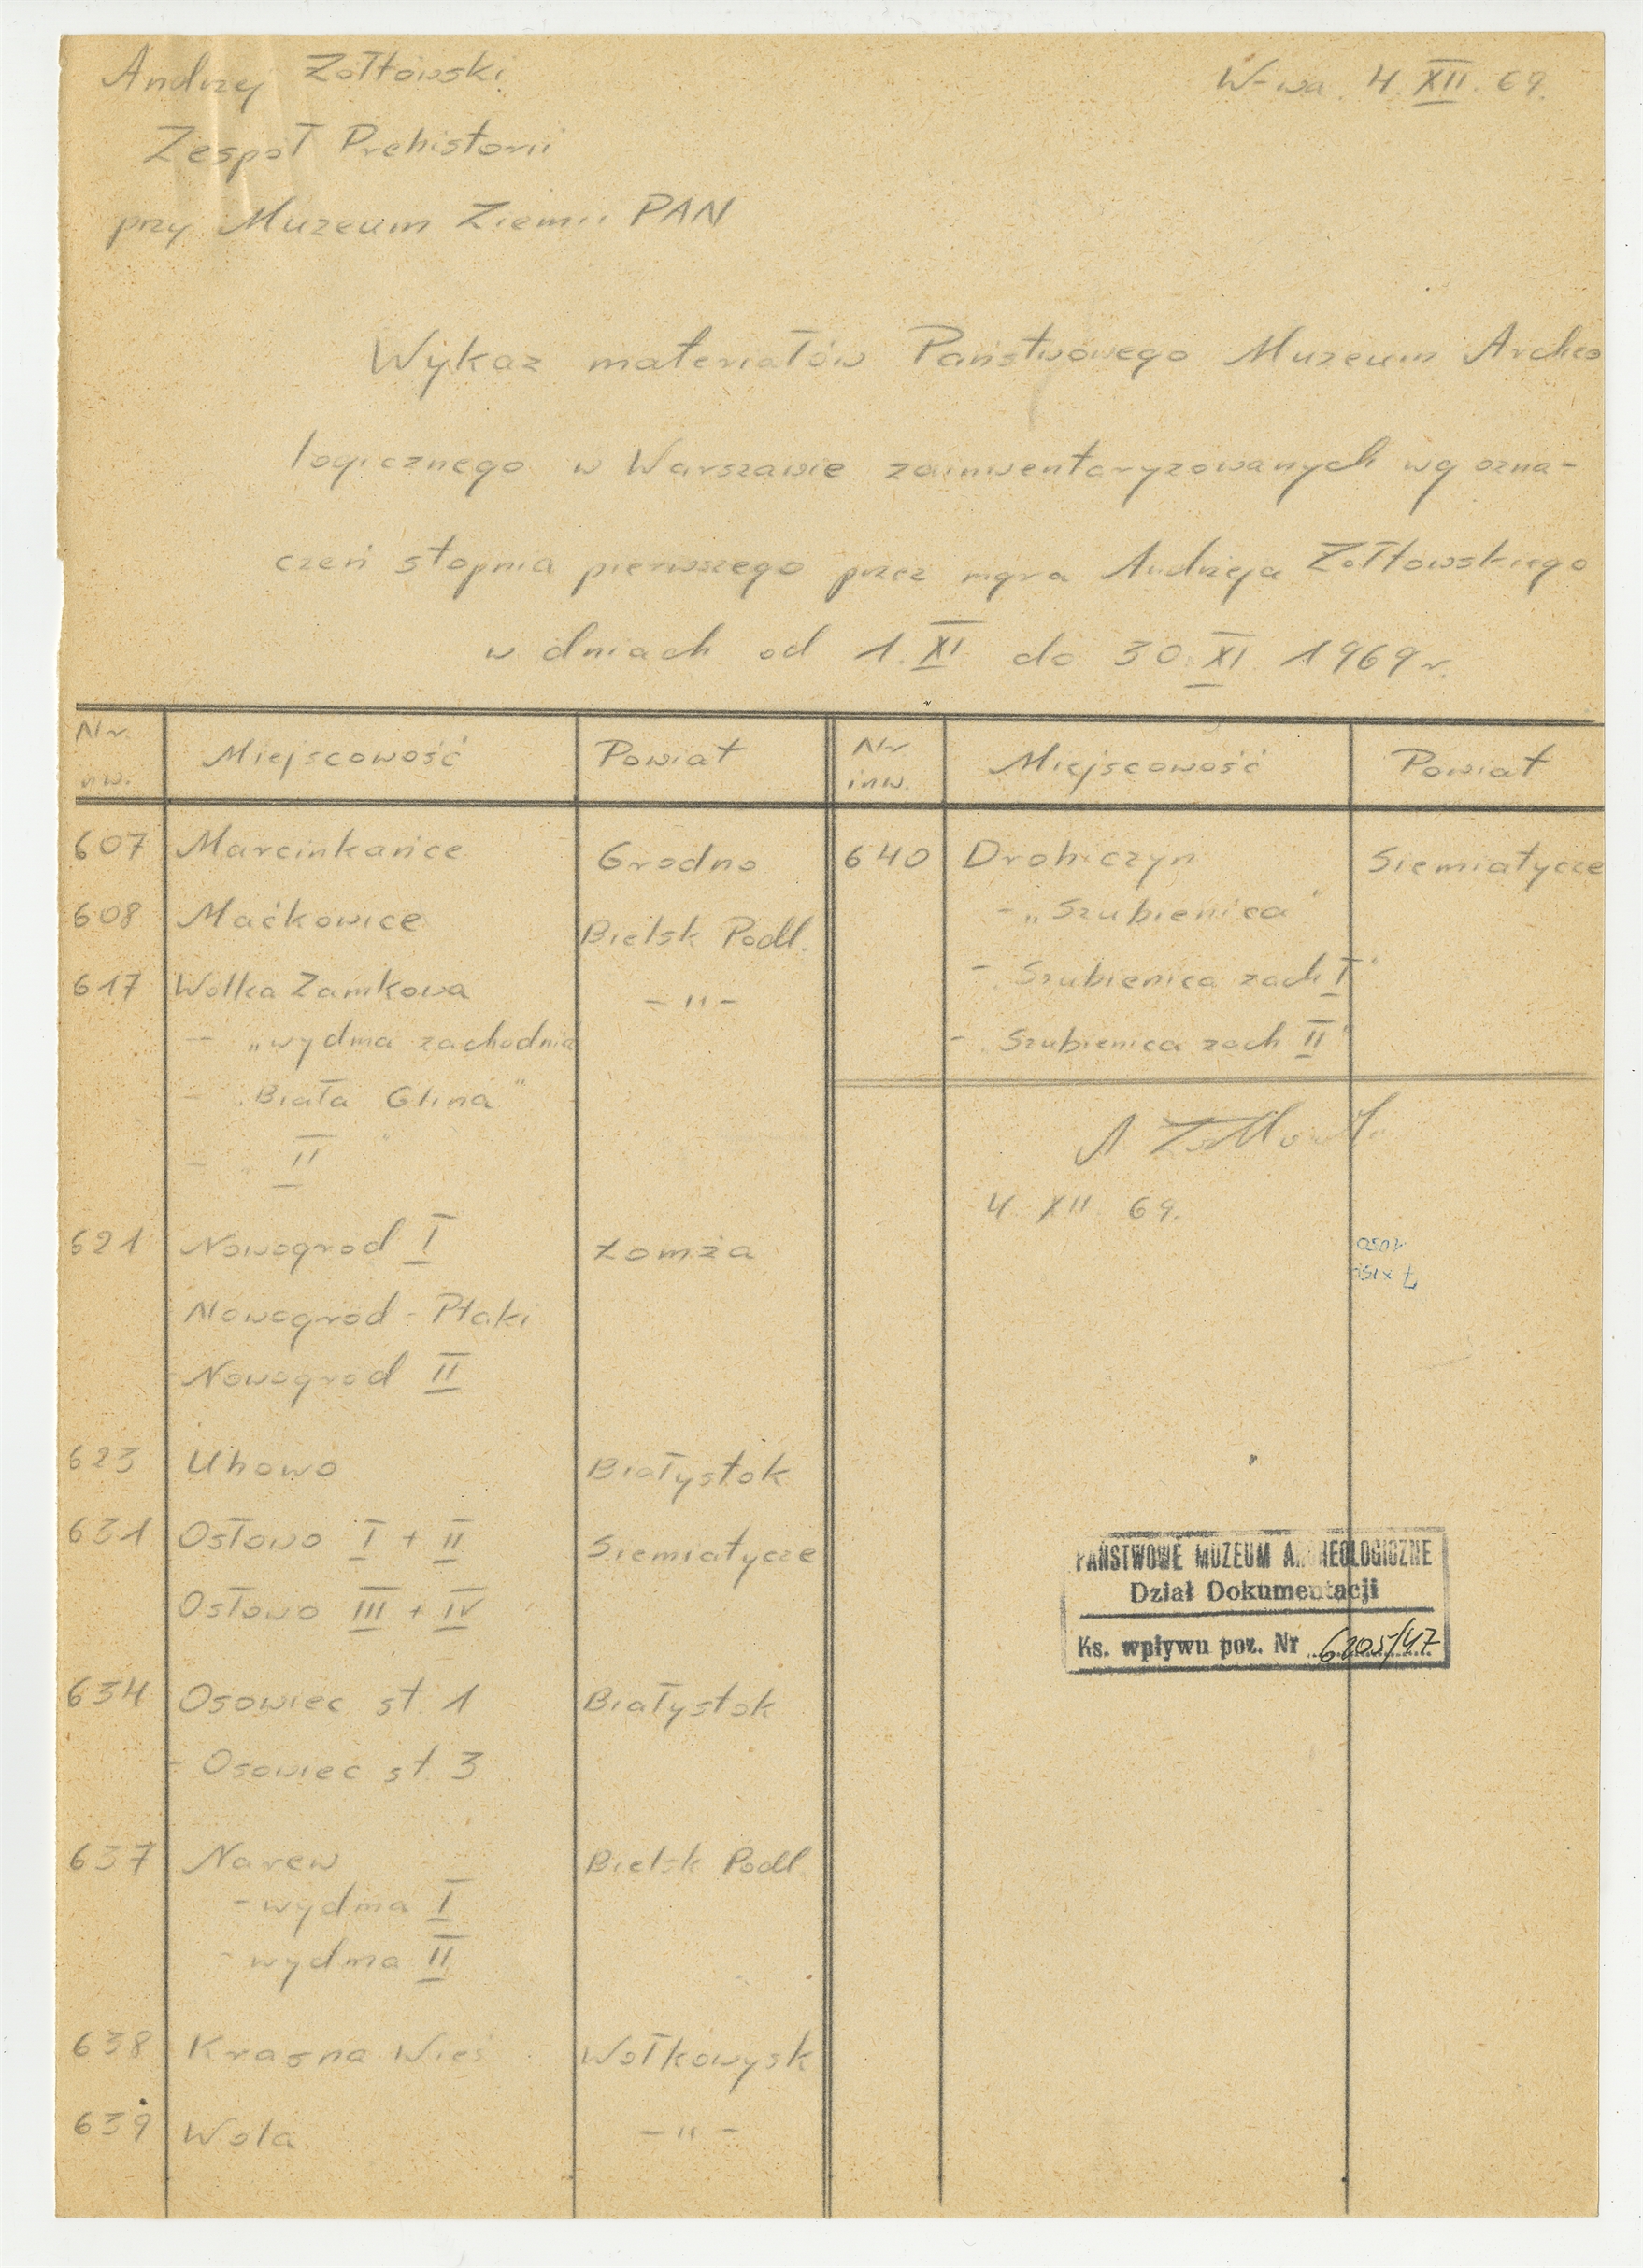 Andrzej Żółtowski
W-wa. 4.XII.69.
Zespół Prehistorii
przy Muzeum Ziemii PAN
Wykaz materiałów Państwowego Muzeum Archeo
logicznego w Warszawie zainwentaryzowanych wg ozna-
czeń stopnia pierwszego przez mgra Andrzeja Żółtowskiego
w dniach od 1.XI do 30.XI 1969 r.
Nr. inw. Miejscowość Powiat
607 Marcinkańce Grodno
608 Maćkowice Bielsk Podl.
617 Wolka Zamkowa - " -
- „wydma zachodnia
- „Biała Glina"
- II "
621 Nowogród I Łomża
Nowogród - Ptaki
- Nowogród II
623 Uhowo Białystok
631 Osłowo I + II Siemiatycze
Osłowo III + IV
634 Osowiec st. 1 Białystok
- Osowiec st. 3
637 Narew Bielsk Podl
- wydma I
- wydma II
638 Krasna Wieś Wołkowysk
639 Wola - " -
Nr inw. Miejscowość Powiat
640 Drohiczyn Siemiatycze
- „Szubienica"
- „Szubienica zach I"
- „Szubienica zach II"
4 XII 69.
PAŃSTWOWE MUZEUM ARCHEOLOGICZNE
Dział Dokumentacji
Ks. wpływu poz. Nr 6205/47